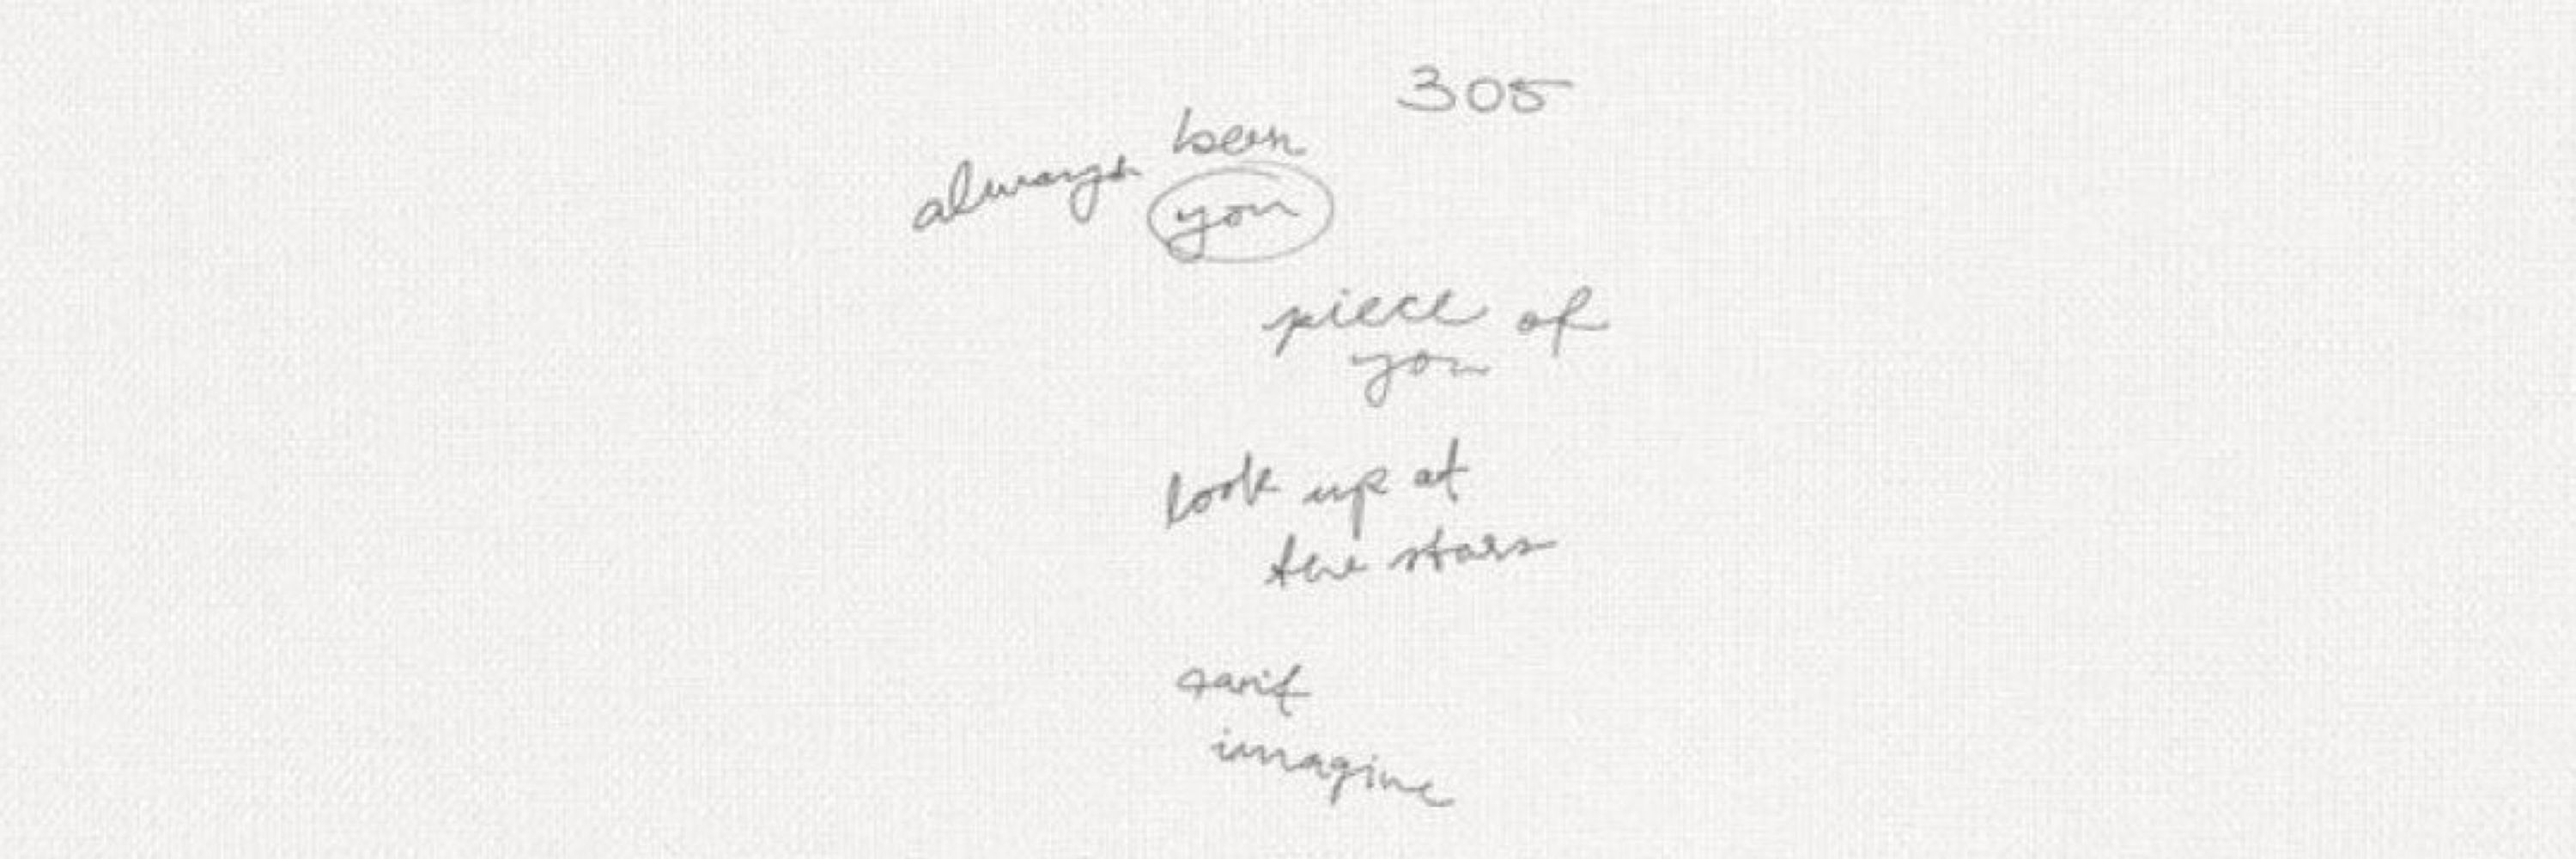 305
always been
you
piece of
you
look up at
the stars
can't
imagine